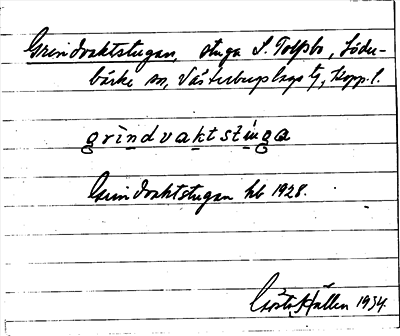 Grindvaktstugan, stuga S. Tolfsbo, Söder-
bärke sn, Västerbergslags tg, Kopp. l.
grindvaktstuga
Grindvaktstugan kb 1928.
Gösta Hallen 1934.